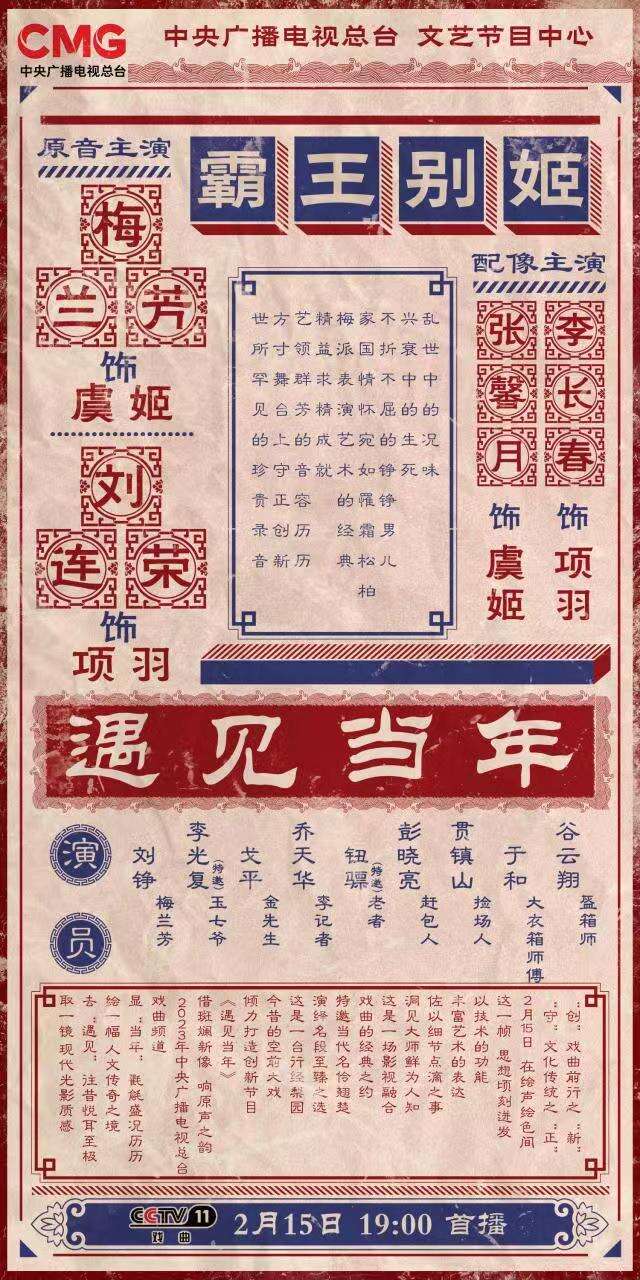 CMG
中央广播电视总台
中央广播电视总台 文艺节目中心
原音主演
霸王别姬
梅兰芳
饰
虞姬
刘连荣
饰
项羽
配像主演
李长春
饰
项羽
张馨月
饰
虞姬
乱世中的况味
兴衰中的生死
不折不屈的铮铮男儿
家国情怀宛如罹霜松柏
梅派表演艺术的经典
精益求精成就
艺领群芳的音容历历
方寸舞台上守正创新
世所罕见的珍贵录音
遇见当年
演员
刘铮 梅兰芳
李光复(特邀) 王七爷
戈平 金先生
乔天华 李记者
钮骠(特邀) 老者
彭晓亮 赶包人
贯镇山 捡场人
于和 大衣箱师傅
谷云翔 盔箱师
“创”戏曲前行之“新”
“守”文化传统之“正”
2月15日 在绘声绘色间
这一帧 思想顷刻迸发
以技术的功能
丰富艺术的表达
佐以细节点滴之事
洞见大师鲜为人知
这是一场影视融合
戏曲的经典之约
特邀当代名伶翘楚
演绎名段至臻之选
这是一台行经梨园
今昔的空前大戏
倾力打造创新节目
《遇见当年》
借斑斓新像 响原声之韵
2023年中央广播电视总台
戏曲频道
显“当年”氍毹盛况历历
绘一幅人文传奇之境
去“遇见”注昔悦耳至极
取一镜现代光影质感
CCTV 11
戏曲
2月15日 19:00 首播